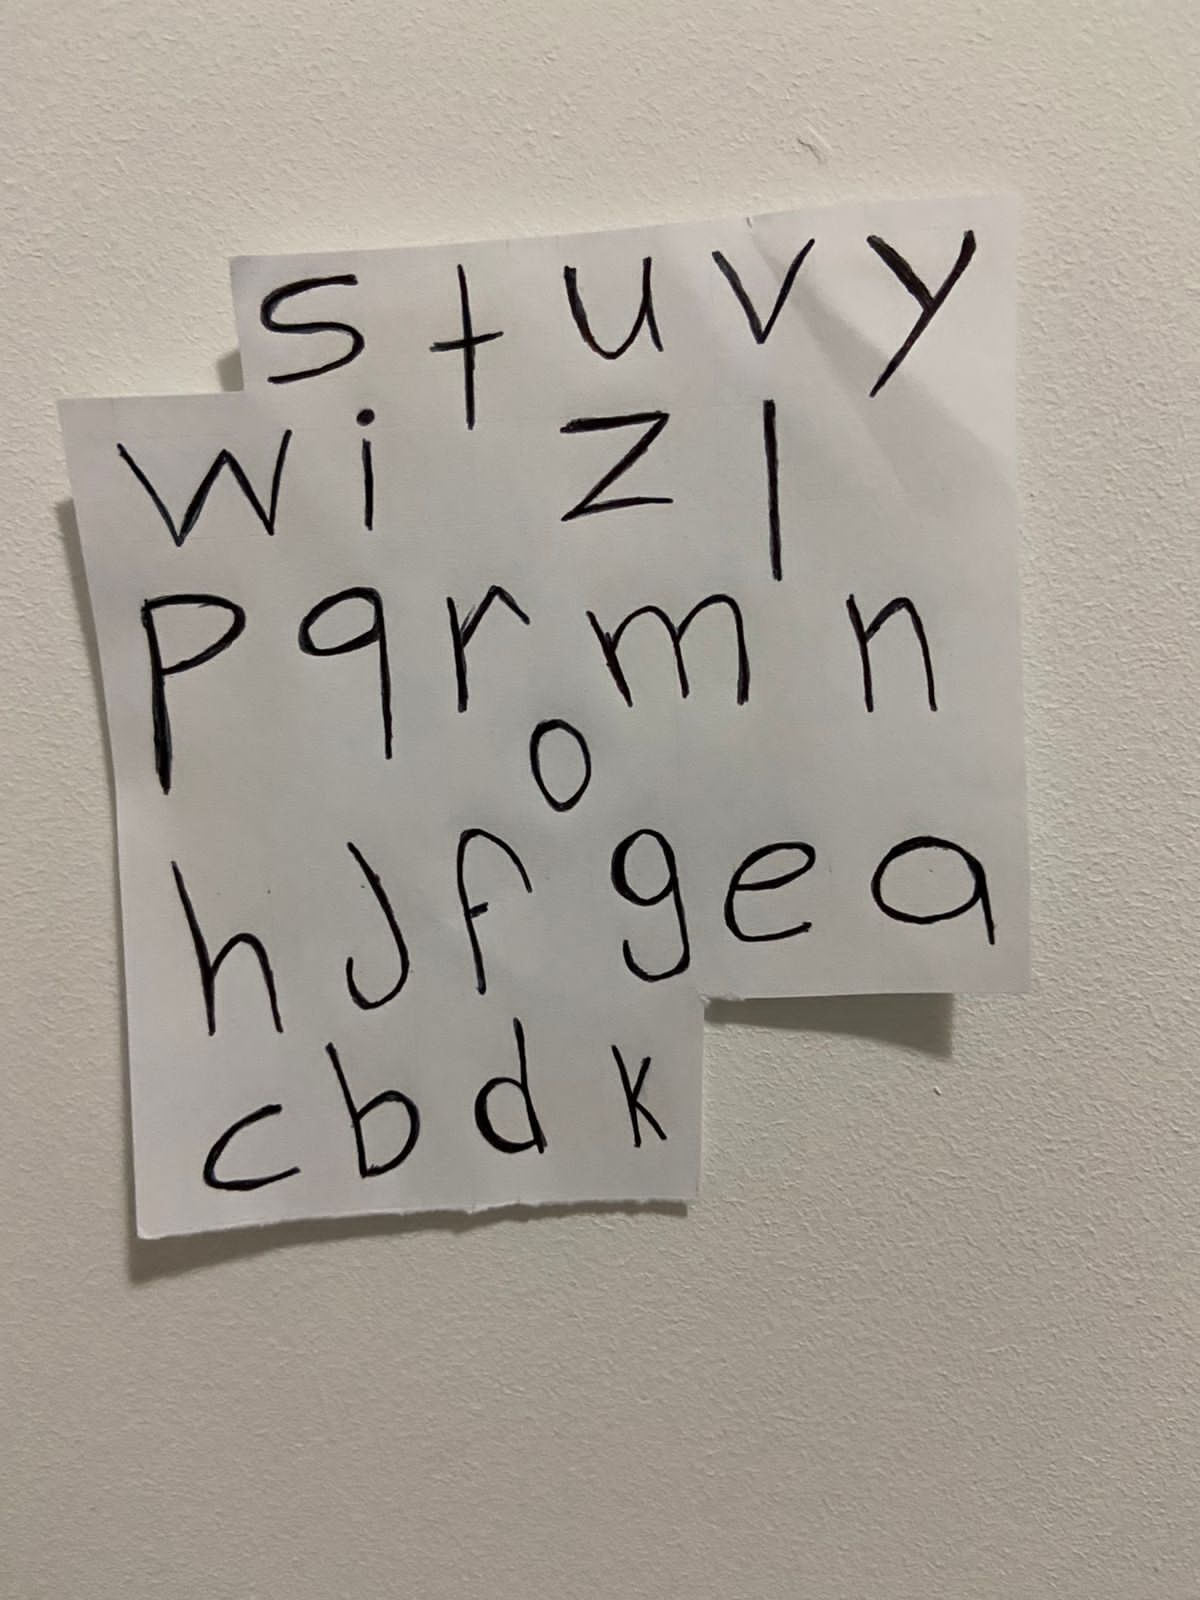 s t u v y
w i z l
p q r m n
o
h J f g e a
c b d k